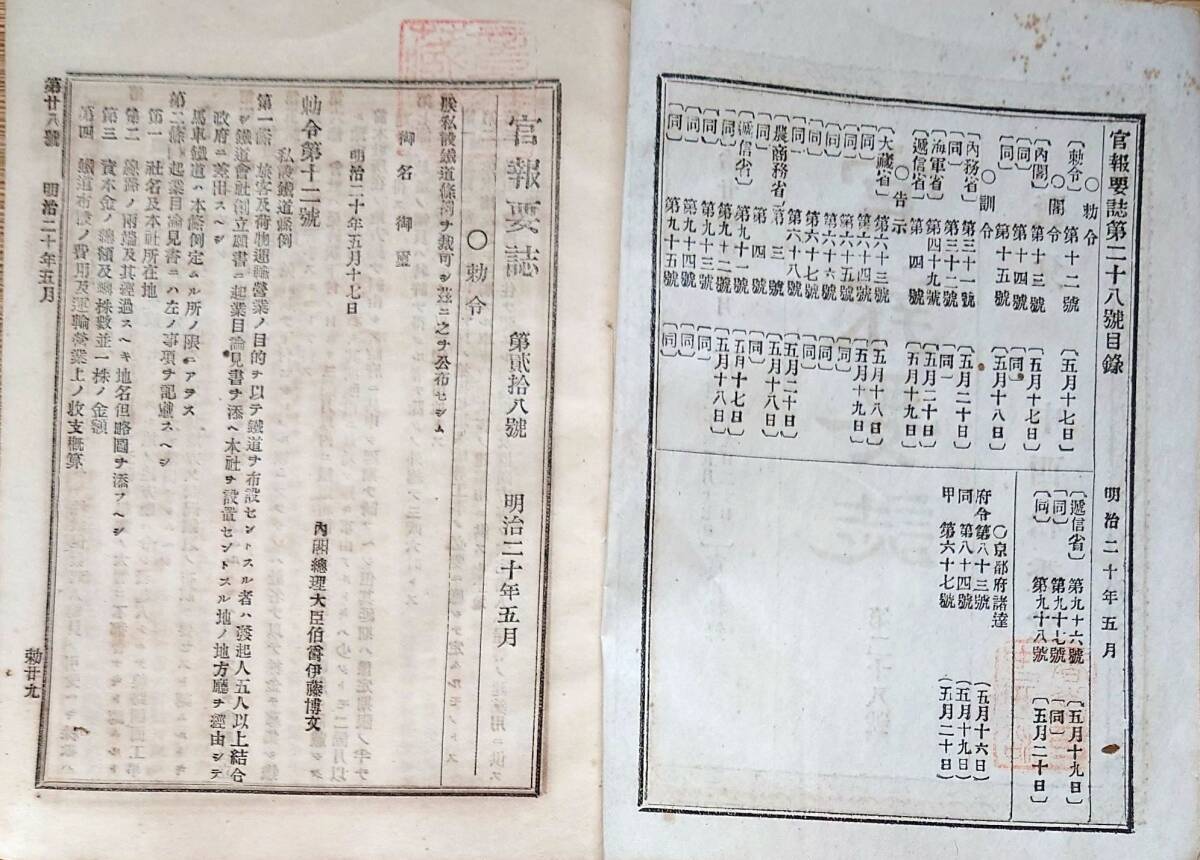 官報要誌第二十八號目錄　明治二十年五月
○勅令
〔勅令〕　第十二號　〔五月十七日〕
○閣令
〔內閣〕　第十三號　〔五月十七日〕
〔同〕　第十四號　〔同〕
〔同〕　第十五號　〔五月十八日〕
○訓令
〔內務省〕　第三十一號　〔五月二十日〕
〔同〕　第三十二號　〔同〕
〔海軍省〕　第四十九號　〔五月二十日〕
〔遞信省〕　第四號　〔五月十九日〕
○告示
〔大藏省〕　第六十三號　〔五月十八日〕
〔同〕　第六十四號　〔五月十九日〕
〔同〕　第六十五號　〔同〕
〔同〕　第六十六號　〔同〕
〔同〕　第六十七號　〔同〕
〔同〕　第六十八號　〔五月二十日〕
〔農商務省〕　第三號　〔五月十八日〕
〔同〕　第四號　〔同〕
〔遞信省〕　第九十一號　〔五月十七日〕
〔同〕　第九十二號　〔五月十八日〕
〔同〕　第九十三號　〔同〕
〔同〕　第九十四號　〔同〕
〔同〕　第九十五號　〔同〕
〔遞信省〕　第九十六號　〔五月十九日〕
〔同〕　第九十七號　〔同〕
〔同〕　第九十八號　〔五月二十日〕
○京都府諸達
府令第八十三號　（五月十六日）
同　第八十四號　（五月十九日）
甲　第六十七號　（五月二十日）
官報要誌　第貳拾八號　明治二十年五月
○勅令
朕私設鐵道條例ヲ裁可シ茲ニ之ヲ公布セシム
御名御璽
明治二十年五月十七日
內閣總理大臣伯爵伊藤博文
勅令第十二號
私設鐵道條例
第一條　旅客及荷物運輸營業ノ目的ヲ以テ鐵道ヲ布設セントスル者ハ發起人五人以上結合
シ鐵道會社創立願書ニ起業目論見書ヲ添ヘ本社ヲ設置セントスル地ノ地方廳ヲ經由シテ
政府ニ差出スヘシ
馬車鐵道ハ本條例定ムル所ノ限ニアラス
第二條　起業目論見書ニハ左ノ事項ヲ記載スヘシ
第一　社名及本社所在地
第二　線路ノ兩端及其經過スヘキ地名但略圖ヲ添フヘシ
第三　資本金ノ總額及總株數並一株ノ金額
第四　鐵道布設ノ費用及運輸營業上ノ收支槪算
第廿八號　明治二十年五月
勅廿九